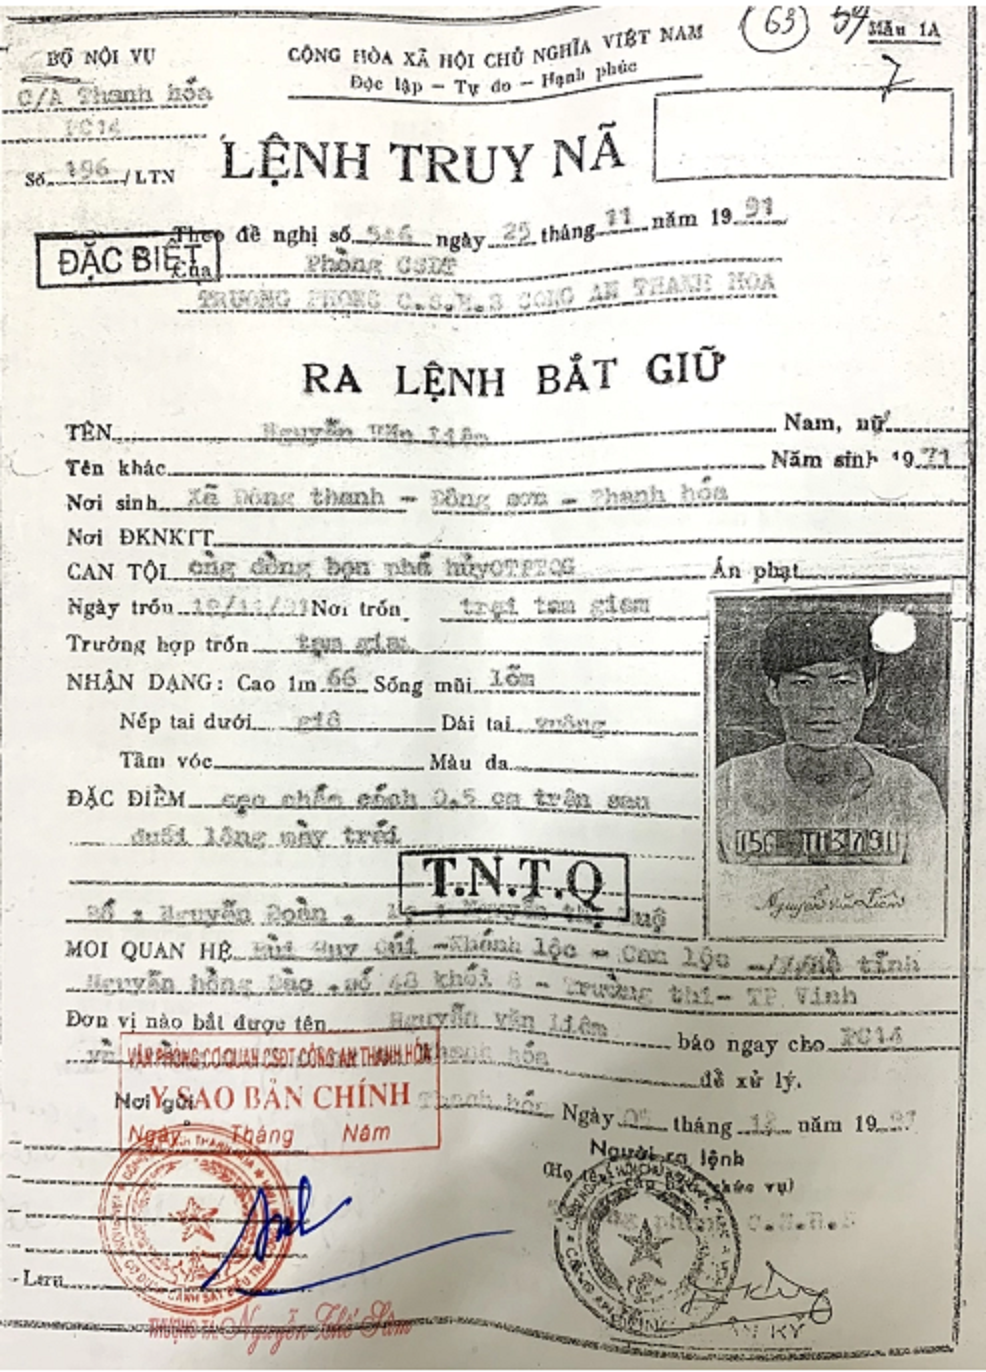 63 54 Mẫu 1A
7
BỘ NỘI VỤ
CỘNG HÒA XÃ HỘI CHỦ NGHĨA VIỆT NAM
Độc lập - Tự do - Hạnh phúc
C/A Thanh hóa
PC14
Số 196 /LTN
LỆNH TRUY NÃ
Theo đề nghị số 546 ngày 25 tháng 11 năm 19 91
ĐẶC BIỆT
của Phòng CSĐT
TRƯỞNG PHÒNG C.S.H.S CÔNG AN THANH HÓA
RA LỆNH BẮT GIỮ
TÊN Nguyễn Văn Liêm Nam, nữ
Tên khác Năm sinh 19 71
Nơi sinh Xã Đông thanh - Đông sơn - Thanh hóa
Nơi ĐKNKTT
CAN TỘI cùng đồng bọn phá hủy Án phạt
Ngày trốn 19/11/91 Nơi trốn trại tạm giam
Trường hợp trốn tạm giam
NHẬN DẠNG: Cao 1m 66 Sống mũi lõm
Nếp tai dưới Dái tai vuông
Tầm vóc Màu da
ĐẶC ĐIỂM sẹo chấm cách 0,5 cm trên sau
đuôi lông mày trái
T.N.T.Q
Nguyễn văn Liêm
Bố : Nguyễn Đoàn . : Nguyễn thị Huệ
MỐI QUAN HỆ Bùi Huy - Khánh lộc - Can lộc - tĩnh
Nguyễn hồng Đào . số 48 khối 8 - Trường thi - TP Vinh
Đơn vị nào bắt được tên Nguyễn văn Liêm báo ngay cho PC14
Thanh hóa
để xử lý.
VĂN PHÒNG CƠ QUAN CSĐT CÔNG AN THANH HÓA
Y SAO BẢN CHÍNH
Ngày Tháng Năm
Nơi gửi
Thanh hóa Ngày tháng 12 năm 19 91
Người ra lệnh
phòng C.S.H.S
Lưu
THƯỢNG TÁ